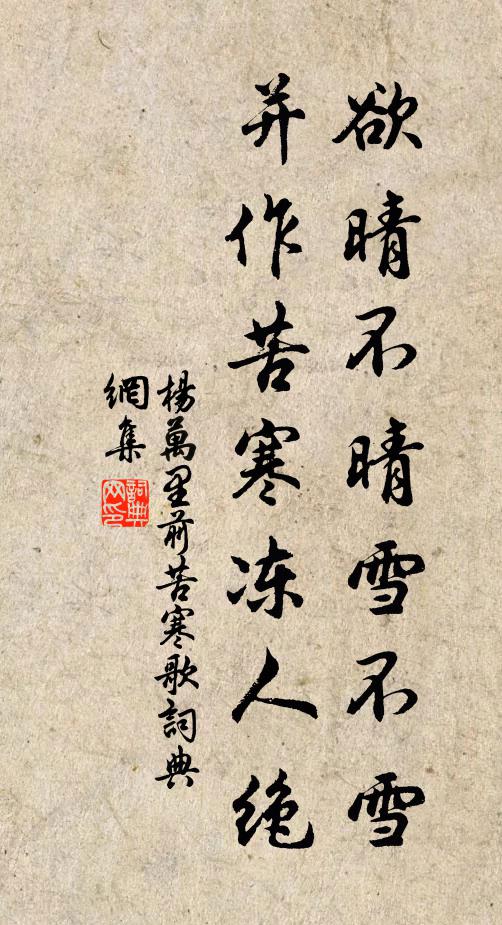 欲晴不晴雪不雪
并作苦寒冻人绝
楊萬里前苦寒歌詞典
網集
詞典网印